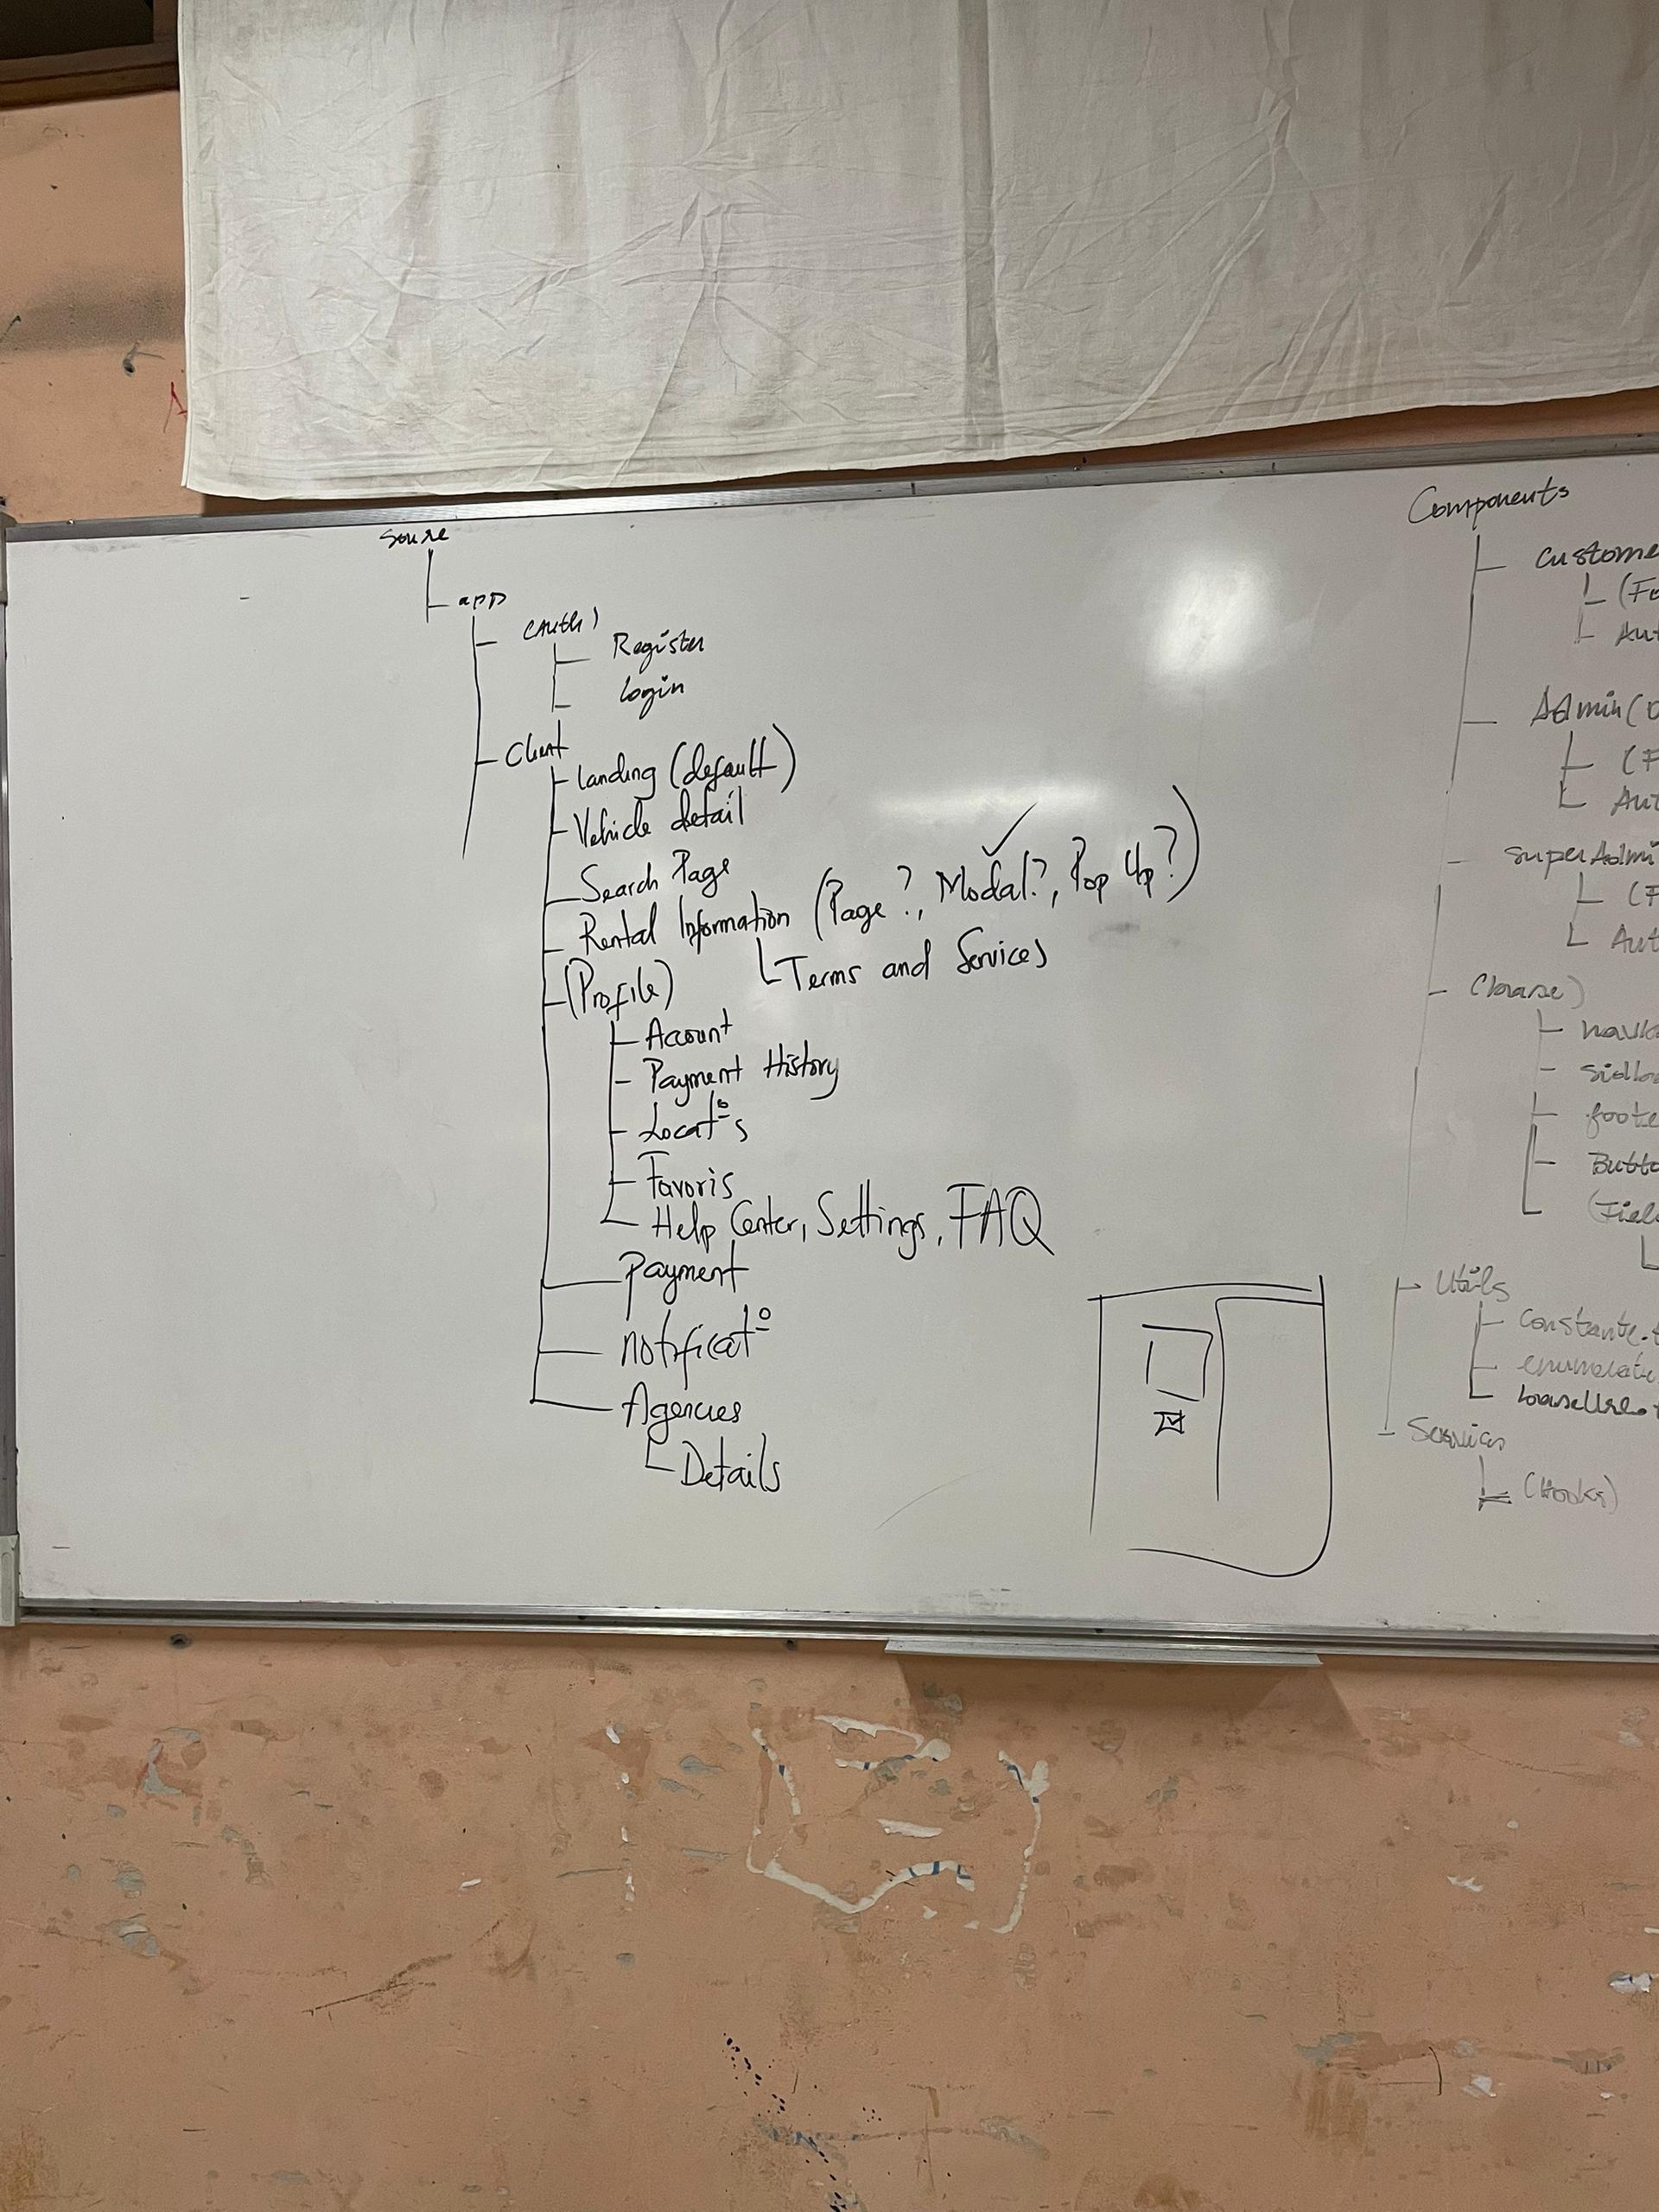 Source
app
(Auth)
Register
Login
Client
Landing (default)
Vehicle detail
Search Page
Rental Information (Page?, Modal?, Pop Up?)
Terms and Services
(Profile)
Account
Payment History
Locat° s
Favoris
Help Center, Settings, FAQ
Payment
notificat°
Agencies
Details
Components
Custome
(Fo
Aut
Admin (D
(F
Aut
SuperAdmi
(F
Aut
(base)
navb
foote
Butto
(Field
Utils
Constante.t
enumerati
Services
(Hooks)
A